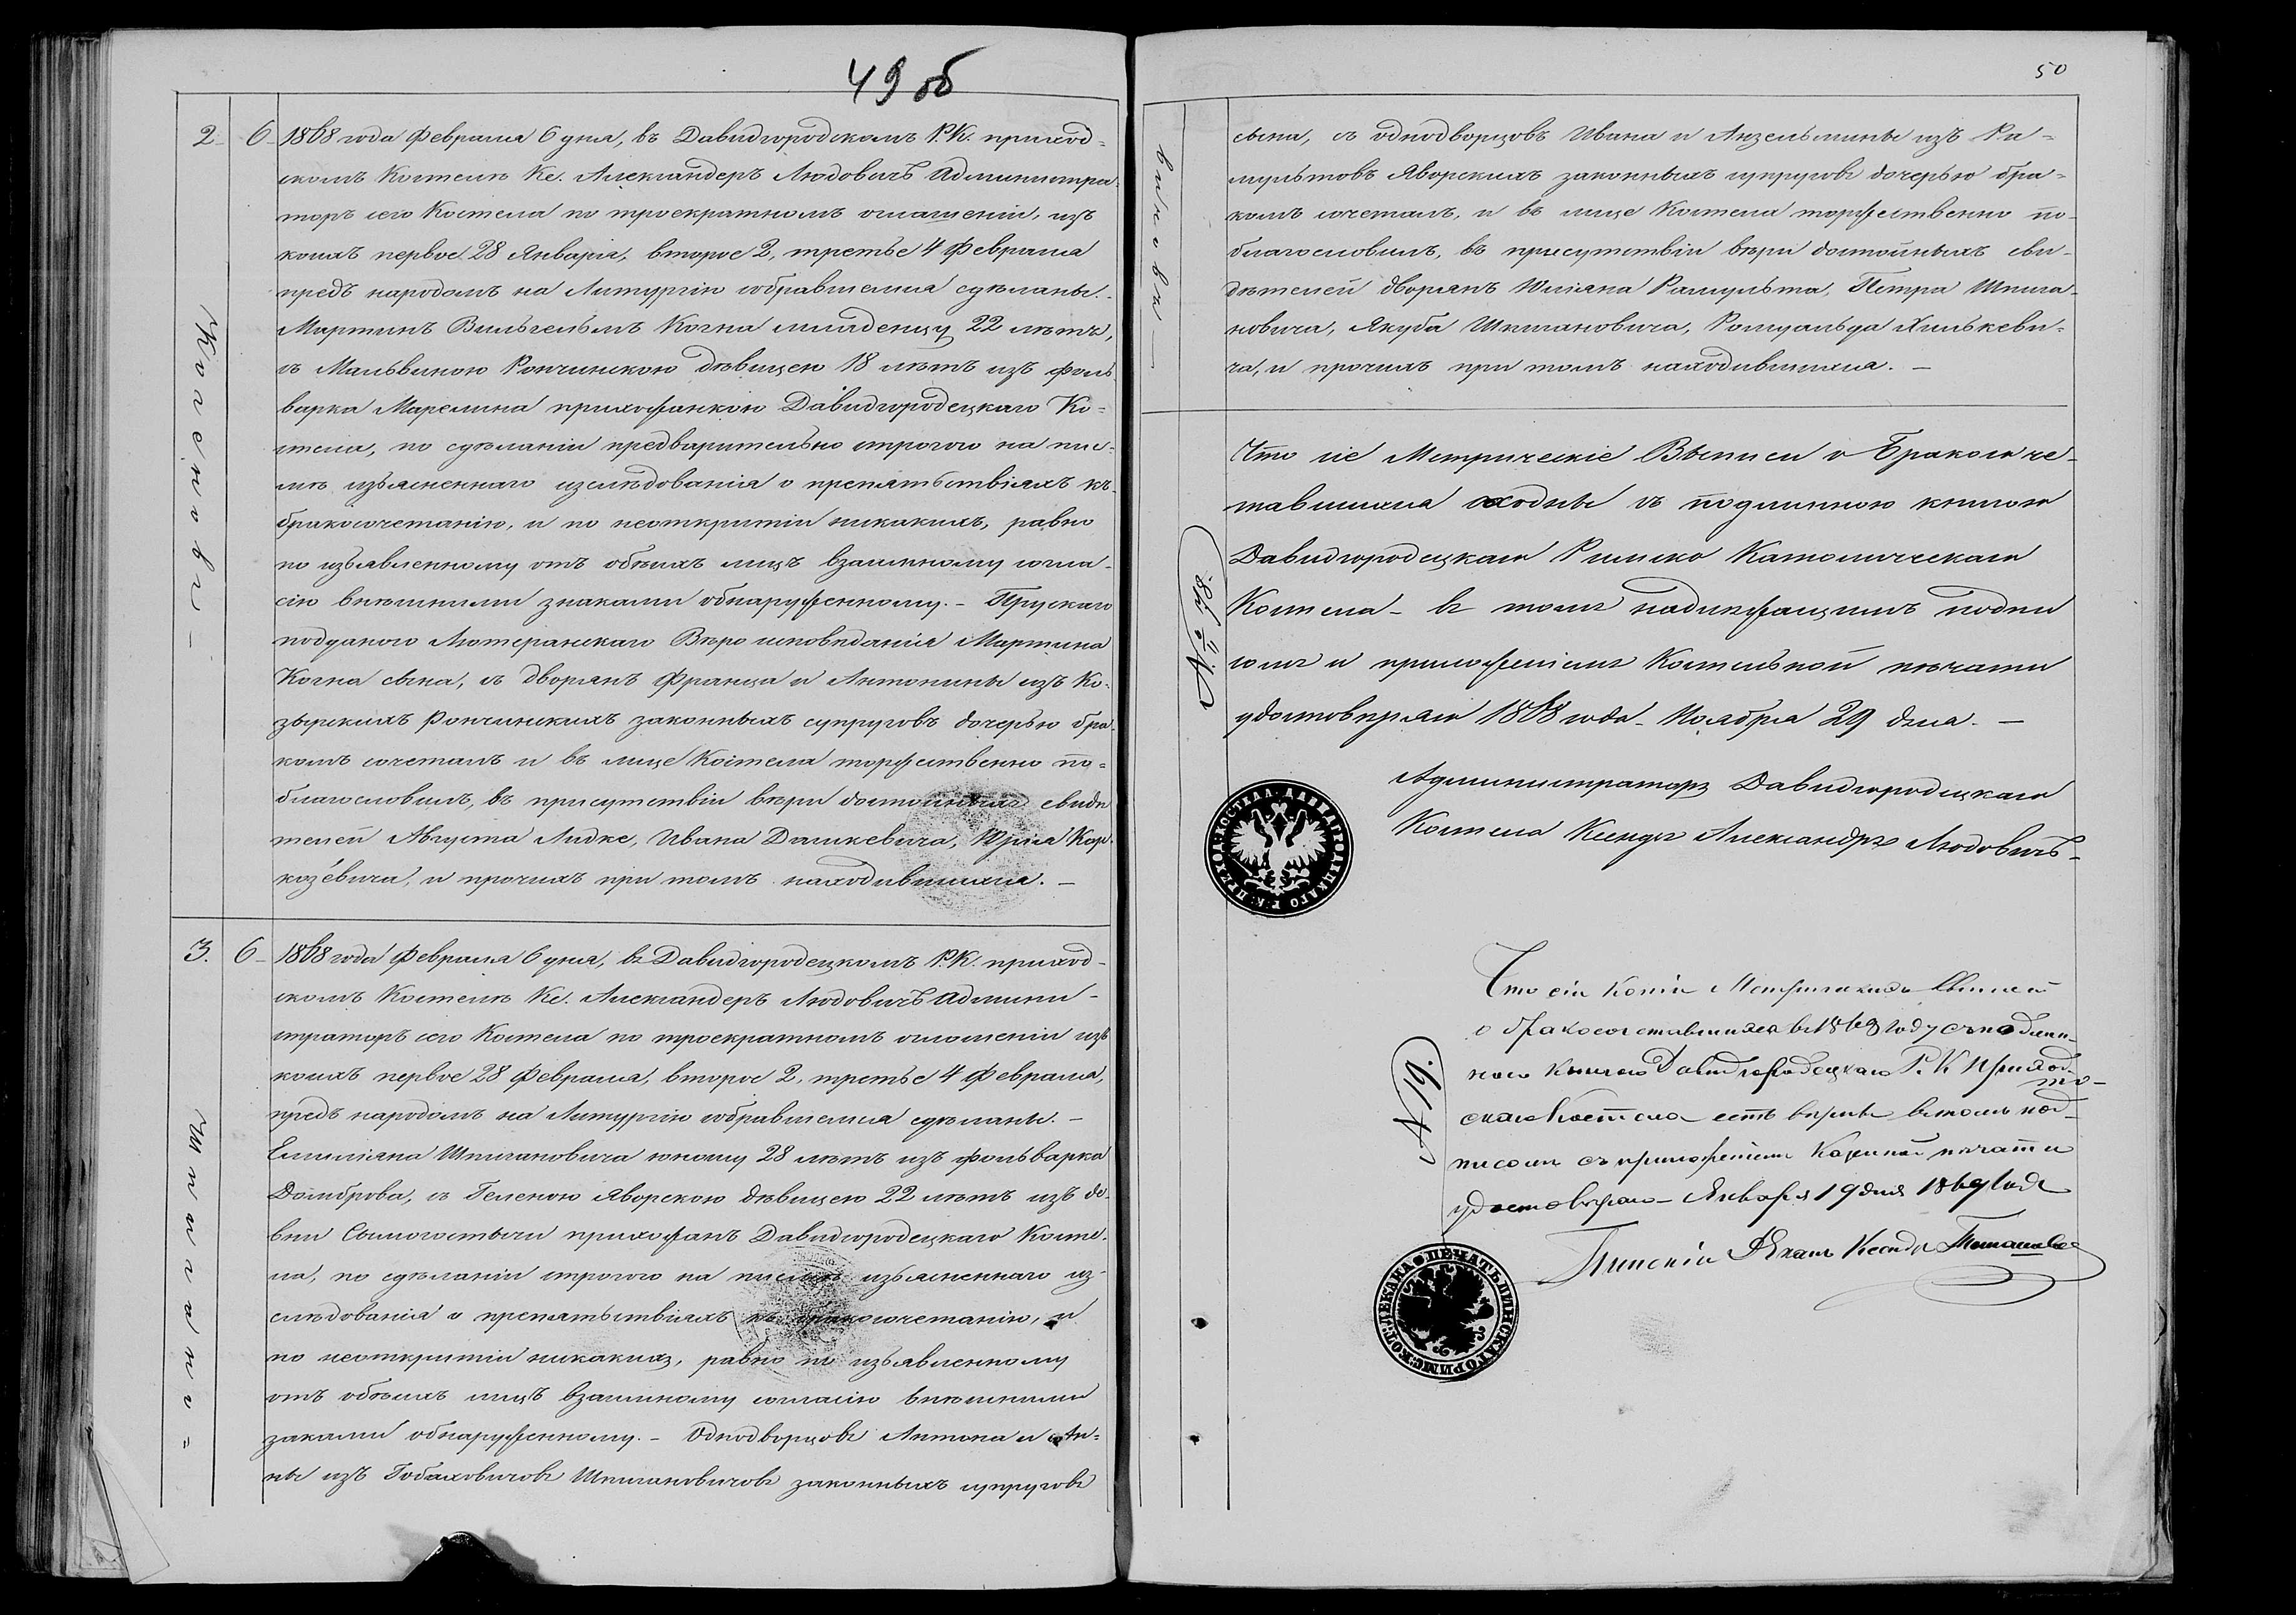 49 об
2. 6. 1868 года Февраля 6 дня, въ Давидгородскомъ Р.К. приход-
скомъ Костелѣ Кс. Александеръ Людовичъ Администра-
торъ сего Костела по троекратномъ оглашеніи, изъ
коихъ первое 28 Января, второе 2, третье 4 Февраля
предъ народомъ на Литургію собравшемся сдѣланы. -
Мартинъ Вильгельмъ Когна младенцу 22 лѣтъ,
съ Мальвиною Рончинскою дѣвицею 18 лѣтъ изъ фоль
варка Марелина прихожанкою Давидгородецкаго Ко-
стела, по сдѣланіи предварительно строгого на пис-
мѣ изъясненнаго изслѣдованія о препятствіяхъ къ
бракосочетанію, и по неоткрытіи никакихъ, равно
по изъявленному отъ обѣихъ лицъ взаимному согла-
сію внѣшними знаками обнаруженному. - Прускаго
подданого Лютеранскаго Вѣро исповѣданія Мартина
Когна сына, съ дворянъ Франца и Антонины изъ Ко-
зырскихъ Рончинскихъ законныхъ супруговъ дочерью бра-
комъ сочеталъ и въ лице Костела торжественно по-
благословилъ, въ присутствіи вѣри достойныхъ свидѣ
телей Августа Лидке, Ивана Дашкевича, Юрія Кор-
козевича, и прочихъ при томъ находившихся. -
3. 6. 1868 года Февраля 6 дня, въ Давидгородецкомъ Р.К. приход-
скомъ Костелѣ Кс. Александеръ Людовичъ Админи-
страторъ сего Костела по троекратномъ оглошеніи изъ
коихъ первое 28 Февраля, второе 2, третье 4 Февраля,
предъ народомъ на Литургію собравшемся сдѣланы. -
Емиліяна Шпигановича юношу 28 лѣтъ изъ фольварка
Домброва, съ Геленою Яворскою дѣвицею 22 лѣтъ изъ де-
вни прихожанъ Давидгородецкаго Косте-
ла, по сдѣланіи строгого на писмѣ изъясненнаго из-
слѣдованія о препятствіяхъ къ бракосочетанію, и
по неоткрытіи никакихъ, равно по изъявленному
отъ обѣихъ лицъ взаимному согласію внѣшними
заками обнаруженному. - Однодворцовъ Антона и Ан-
ны изъ Гобаховичовъ Шпигановичовъ законныхъ супруговъ
50
сына, съ однодворцовъ Ивана и Анзельмины изъ Ра-
мультовъ Яворскихъ законныхъ супруговъ дочерью бра-
комъ сочеталъ, и въ лице Костела торжественно по-
благословилъ, въ присутствіи вѣри достойныхъ сви-
дѣтелей дворянъ Юліяна Рамульта, Петра Шпига-
новича, Якуба Шпигановича, Ромуальда Хилькеви-
ча, и прочихъ при томъ находившихся. -
Что сіе Метрическіе Выписи о Бракосоче-
тавшихся сходны съ подлинною книгою
Давидгородецкаго Римско Католическаго
Костела - въ томъ надлежащимъ подпи
сомъ и приложеніемъ Костельной печати
удостовѣряю 1868 года. Ноября 29 дня. -
№ 178.
Администраторъ Давидгородецкаго
Костела Ксендзъ Александръ Людовичъ -
Что сіи Копіи Метрическихъ Выписей
о бракосочетавшихся въ 1868 году съ подлин-
ною книгою Давидгородецкаго Р. К. Приход-
скаго Костела есть вѣрны въ томъ под-
писомъ съ приложеніемъ Казенной печати
удостовѣряю - Января 19 дня 1869 года
№ 19.
Пинскій Деканъ Ксендзъ